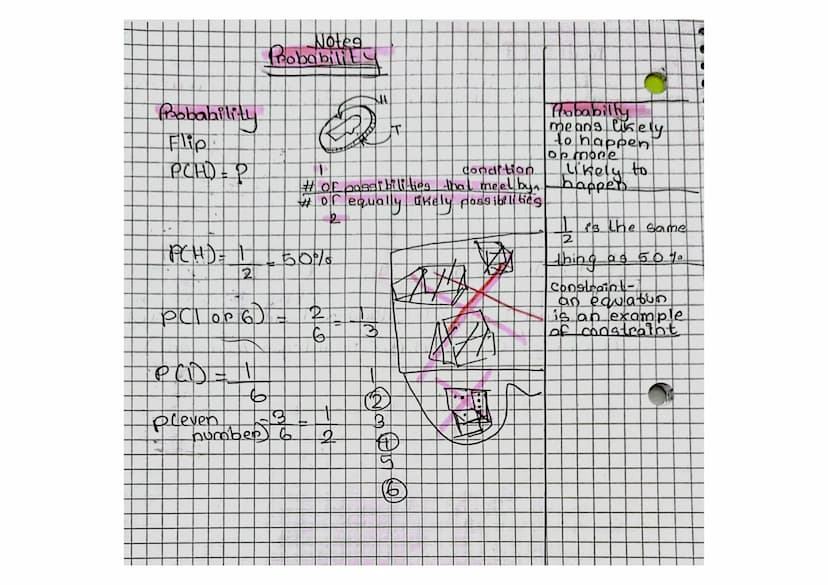 Notes
Probability
Probability
Flip
P(H) = ?
H
T
1 condition
# of possibilities that meet by
# of equally likely possibilities
2
P(H) = 1/2 = 50%
P(1 or 6) = 2/6 = 1/3
P(1) = 1/6
P(even
number) = 3/6 = 1/2
1
2
3
4
5
6
Probability
means likely
to happen
or more
likely to
happen
1/2 is the same
thing as 50%
constraint-
an equation
is an example
of constraint